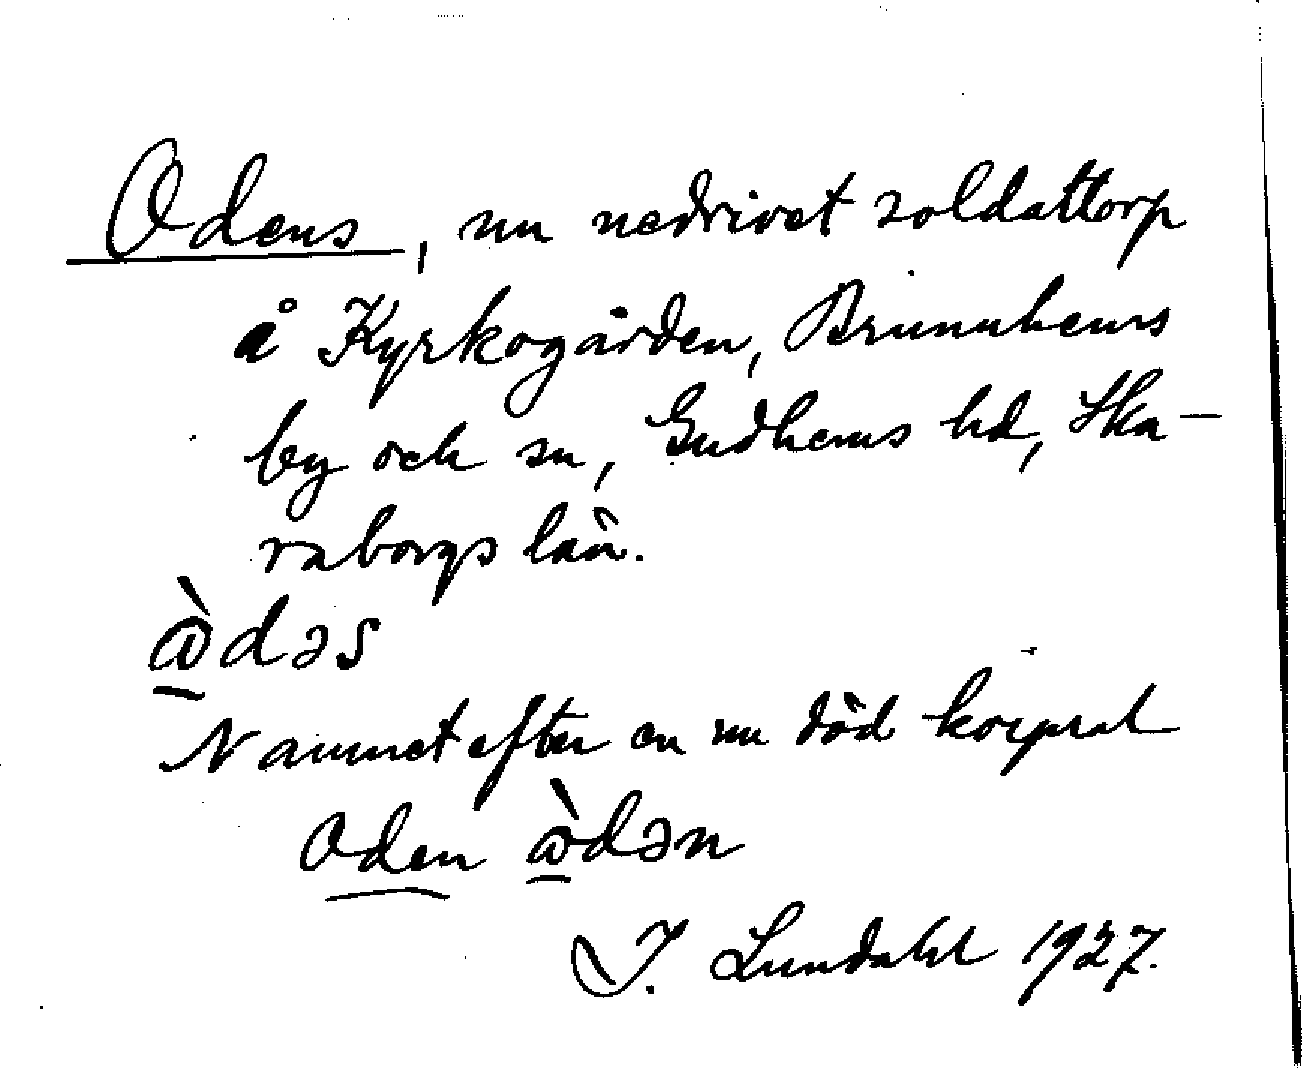 Odens, nu nedrivet soldattorp
å Kyrkogården, Brunnhems
by och sn, Gudhems hd, Ska-
raborgs län.
ὰdəs
Namnet efter en nu död korpral
Oden ὰdən
I. Lundahl 1927.